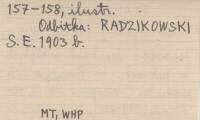 157-158, ilustr.
Odbitka: RADZIKOWSKI
S.E. 1903 b.
MT, WHP